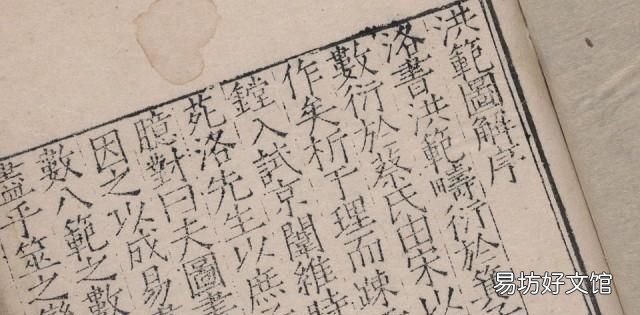 洪範圖解序
洛書洪範疇衍於箕子
數衍於蔡氏由宋以
作矣析于理而疎
鏜入試京闈維時
苑洛先生以庶
臆對曰夫圖書
因之以成易
數八範之數
筮之
易坊好文馆